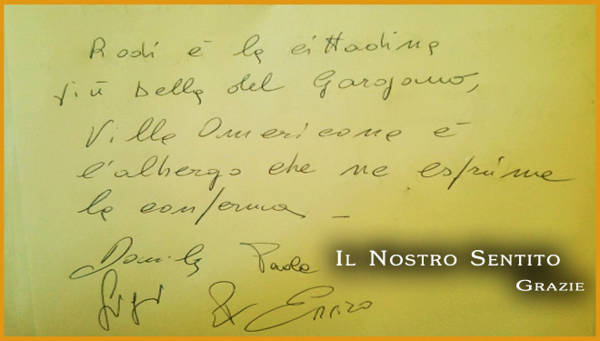 Rodi è la cittadina
più bella del Gargano,
Villa Americana è
l'albergo che ne esprime
la conferma –
Danila Paola
Gigi & Enrico
Il Nostro Sentito
Grazie